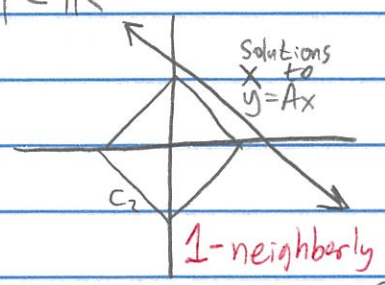 Solutions
x to
y=Ax
C₂
1-neighberly